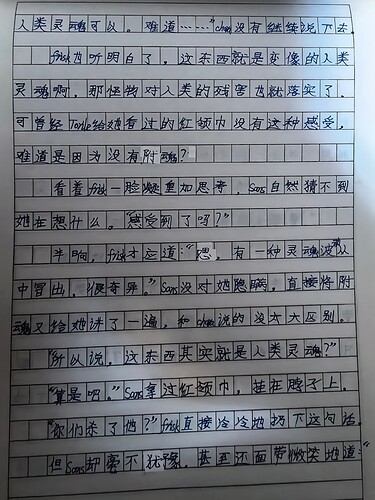 人类灵魂可以。难道……"chara没有继续说下去。
frisk也听明白了，这东西就是变像的人类
灵魂啊，那怪物对人类的残害也就落实了，
可曾经Toriel给她看过的红领巾没有这种感受，
难道是因为没有附魂？
看着frisk一脸凝重加思考，Sans自然猜不到
她在想什么。"感受到了吗？"
半晌，frisk才应道："嗯，有一种灵魂波从
中冒出，很奇异。"Sans没对她隐瞒，直接将附
魂又给她讲了一遍，和chara说的没太大区别。
"所以说，这东西其实就是人类灵魂？"
"算是吧。"Sans拿过红领巾，挂在脖子上。
"你们杀了他？"frisk直接冷冷地扔下这句话。
但Sans却毫不犹豫，甚至还面带微笑地道："